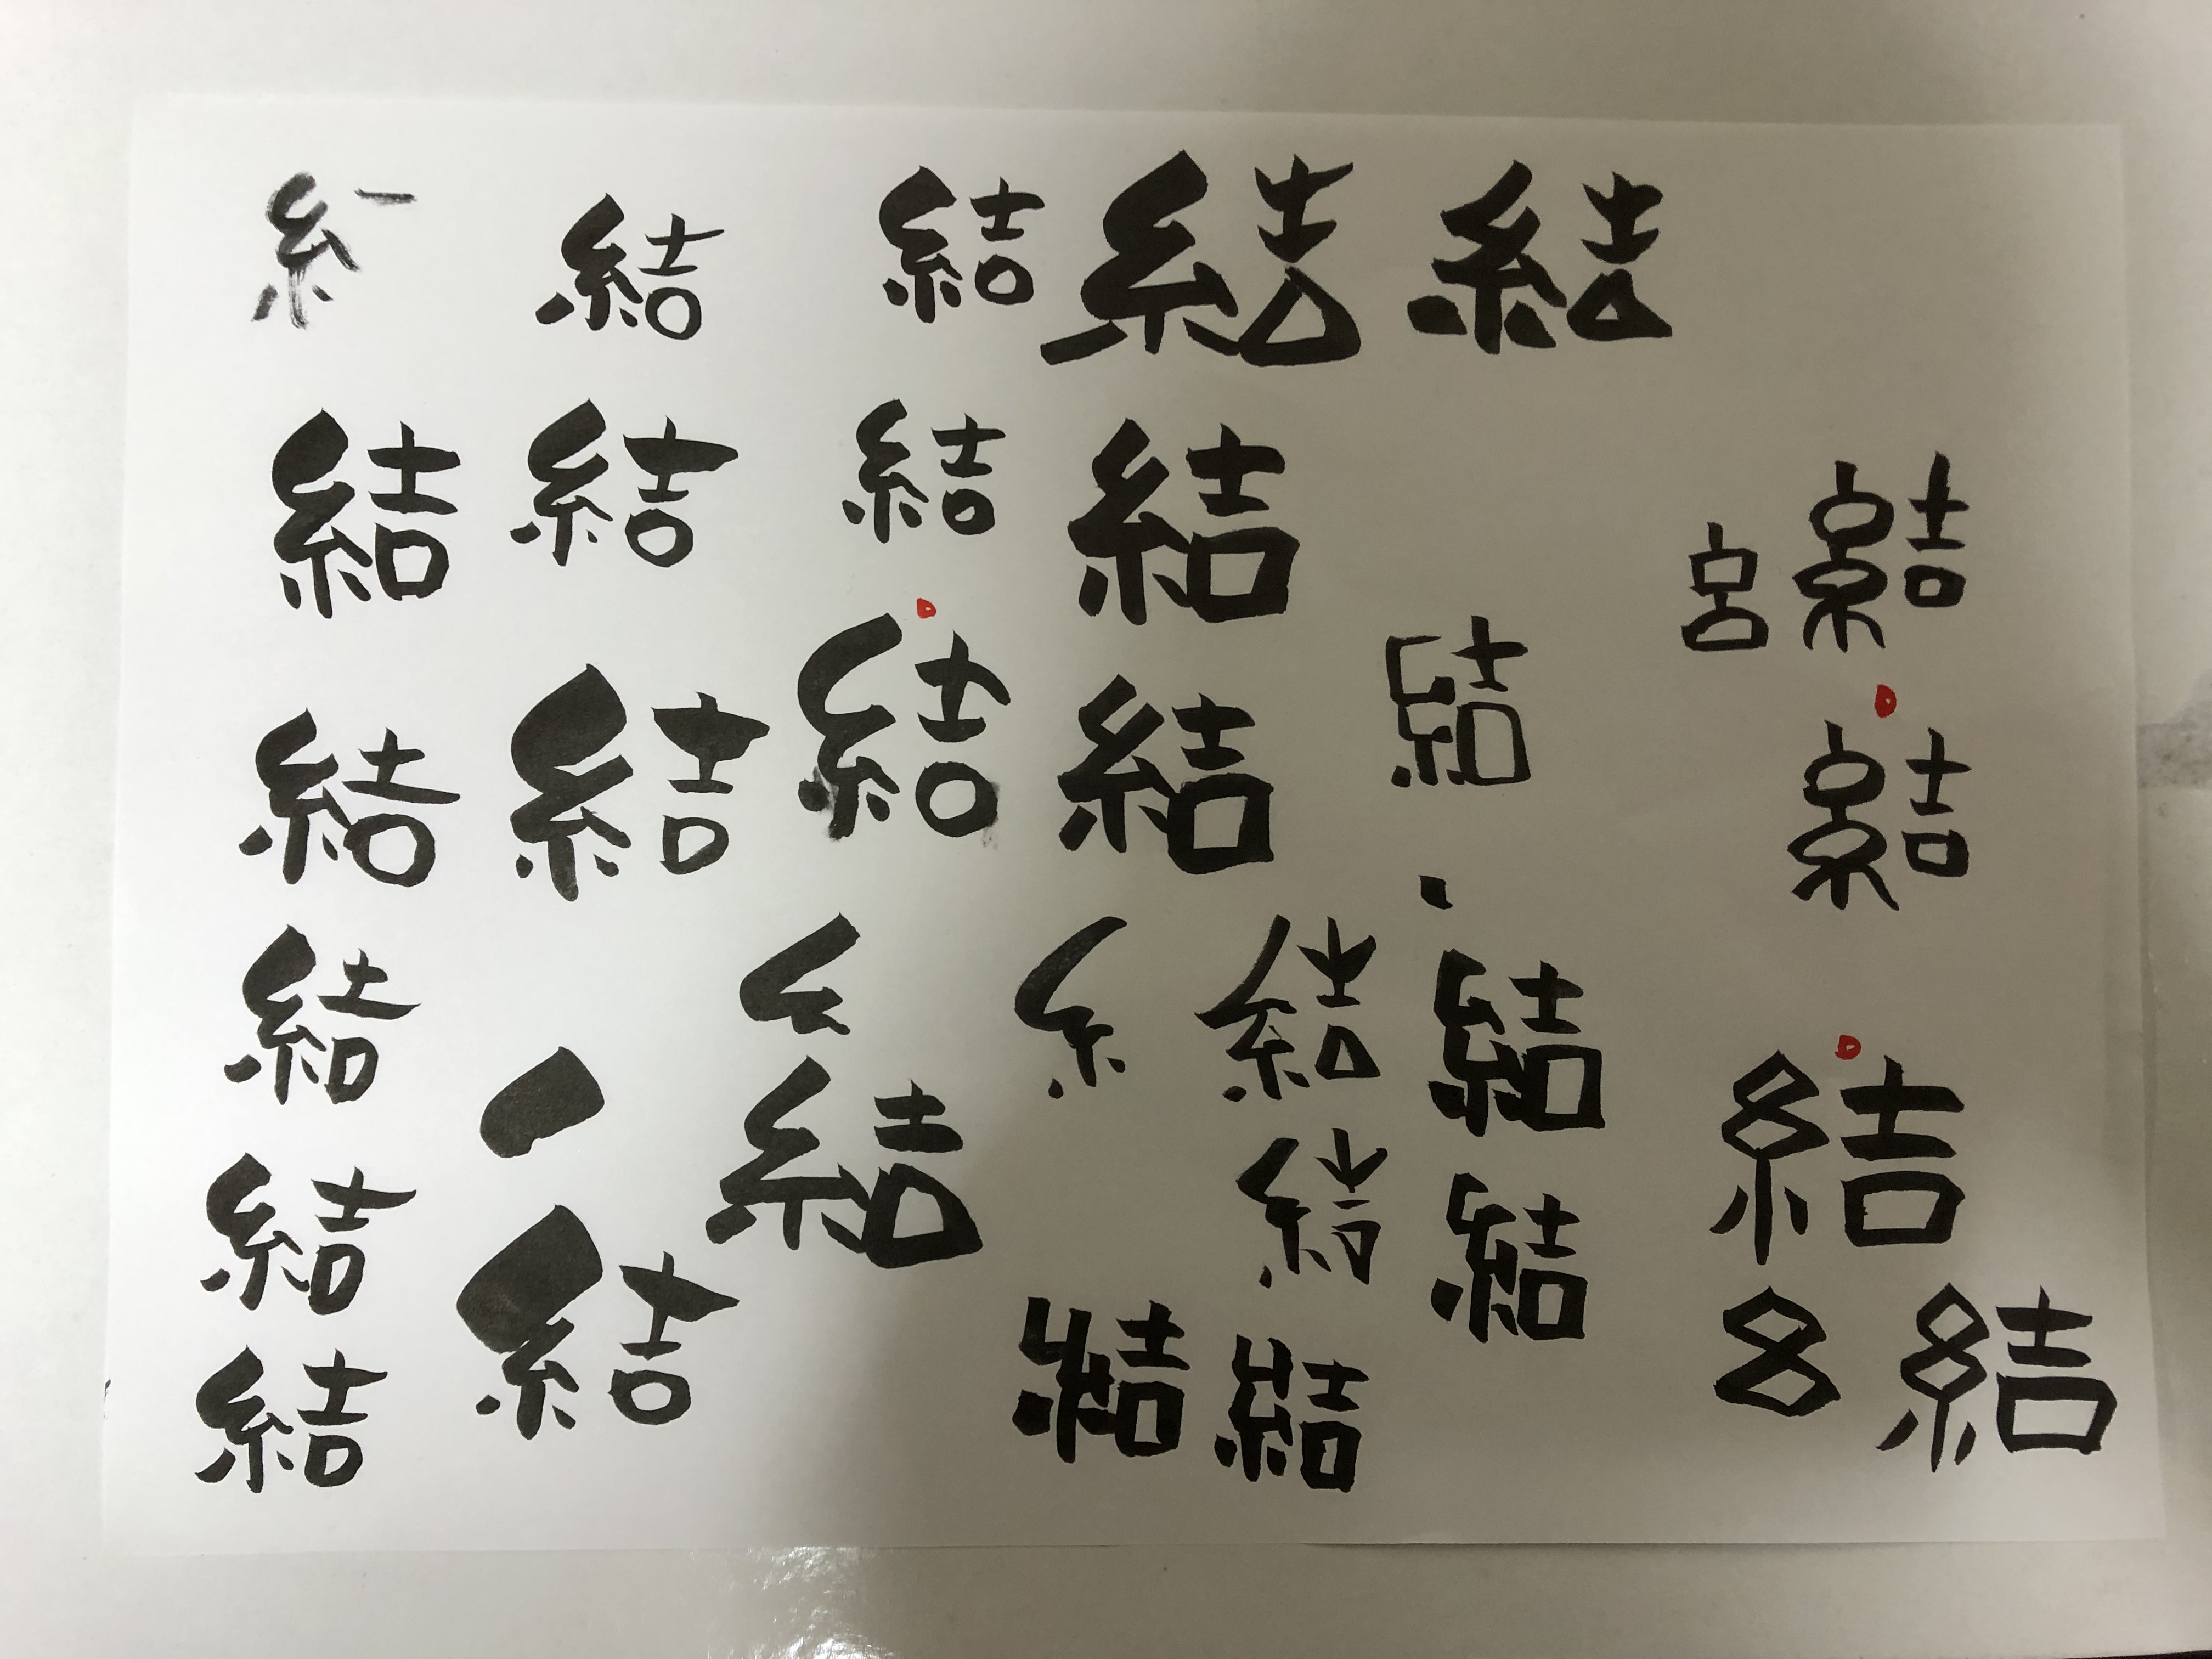 結 結 結 結
結 結 結 結 結
結 結 結 結 結 結
結 結 結
結 結 結 結 結
結 結 結 結 結